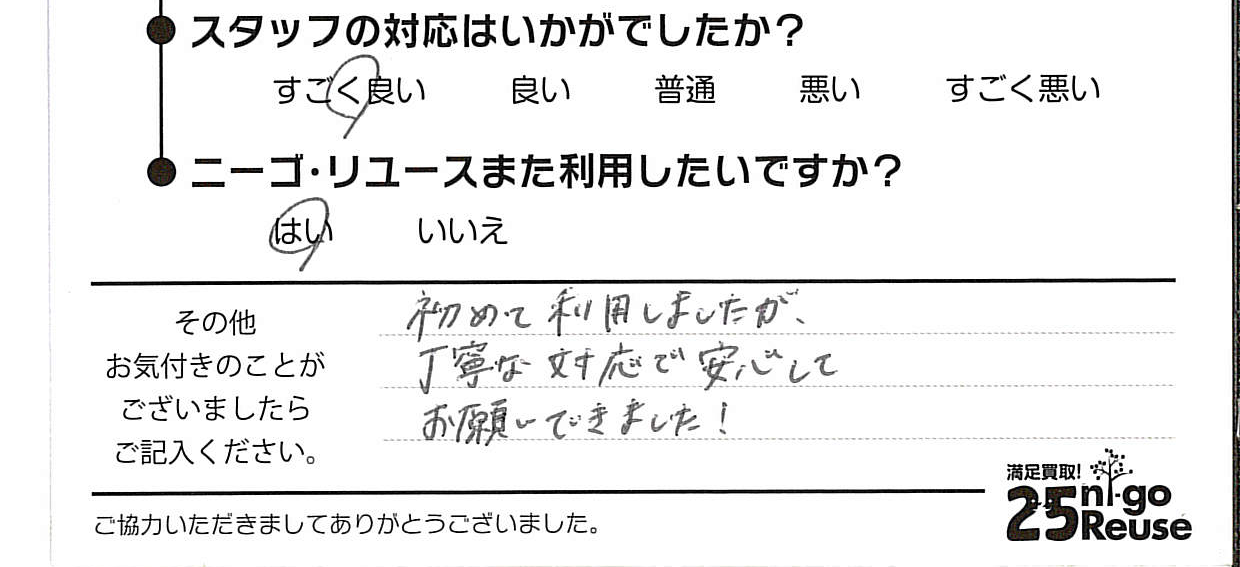 スタッフの対応はいかがでしたか？
すごく良い 良い 普通 悪い すごく悪い
ニーゴ・リユースまた利用したいですか？
はい いいえ
その他
お気付きのことが
ございましたら
ご記入ください。
初めて利用しましたが、
丁寧な対応で安心して
お願いできました！
満足買取！
25 ni-go
Reuse
ご協力いただきましてありがとうございました。